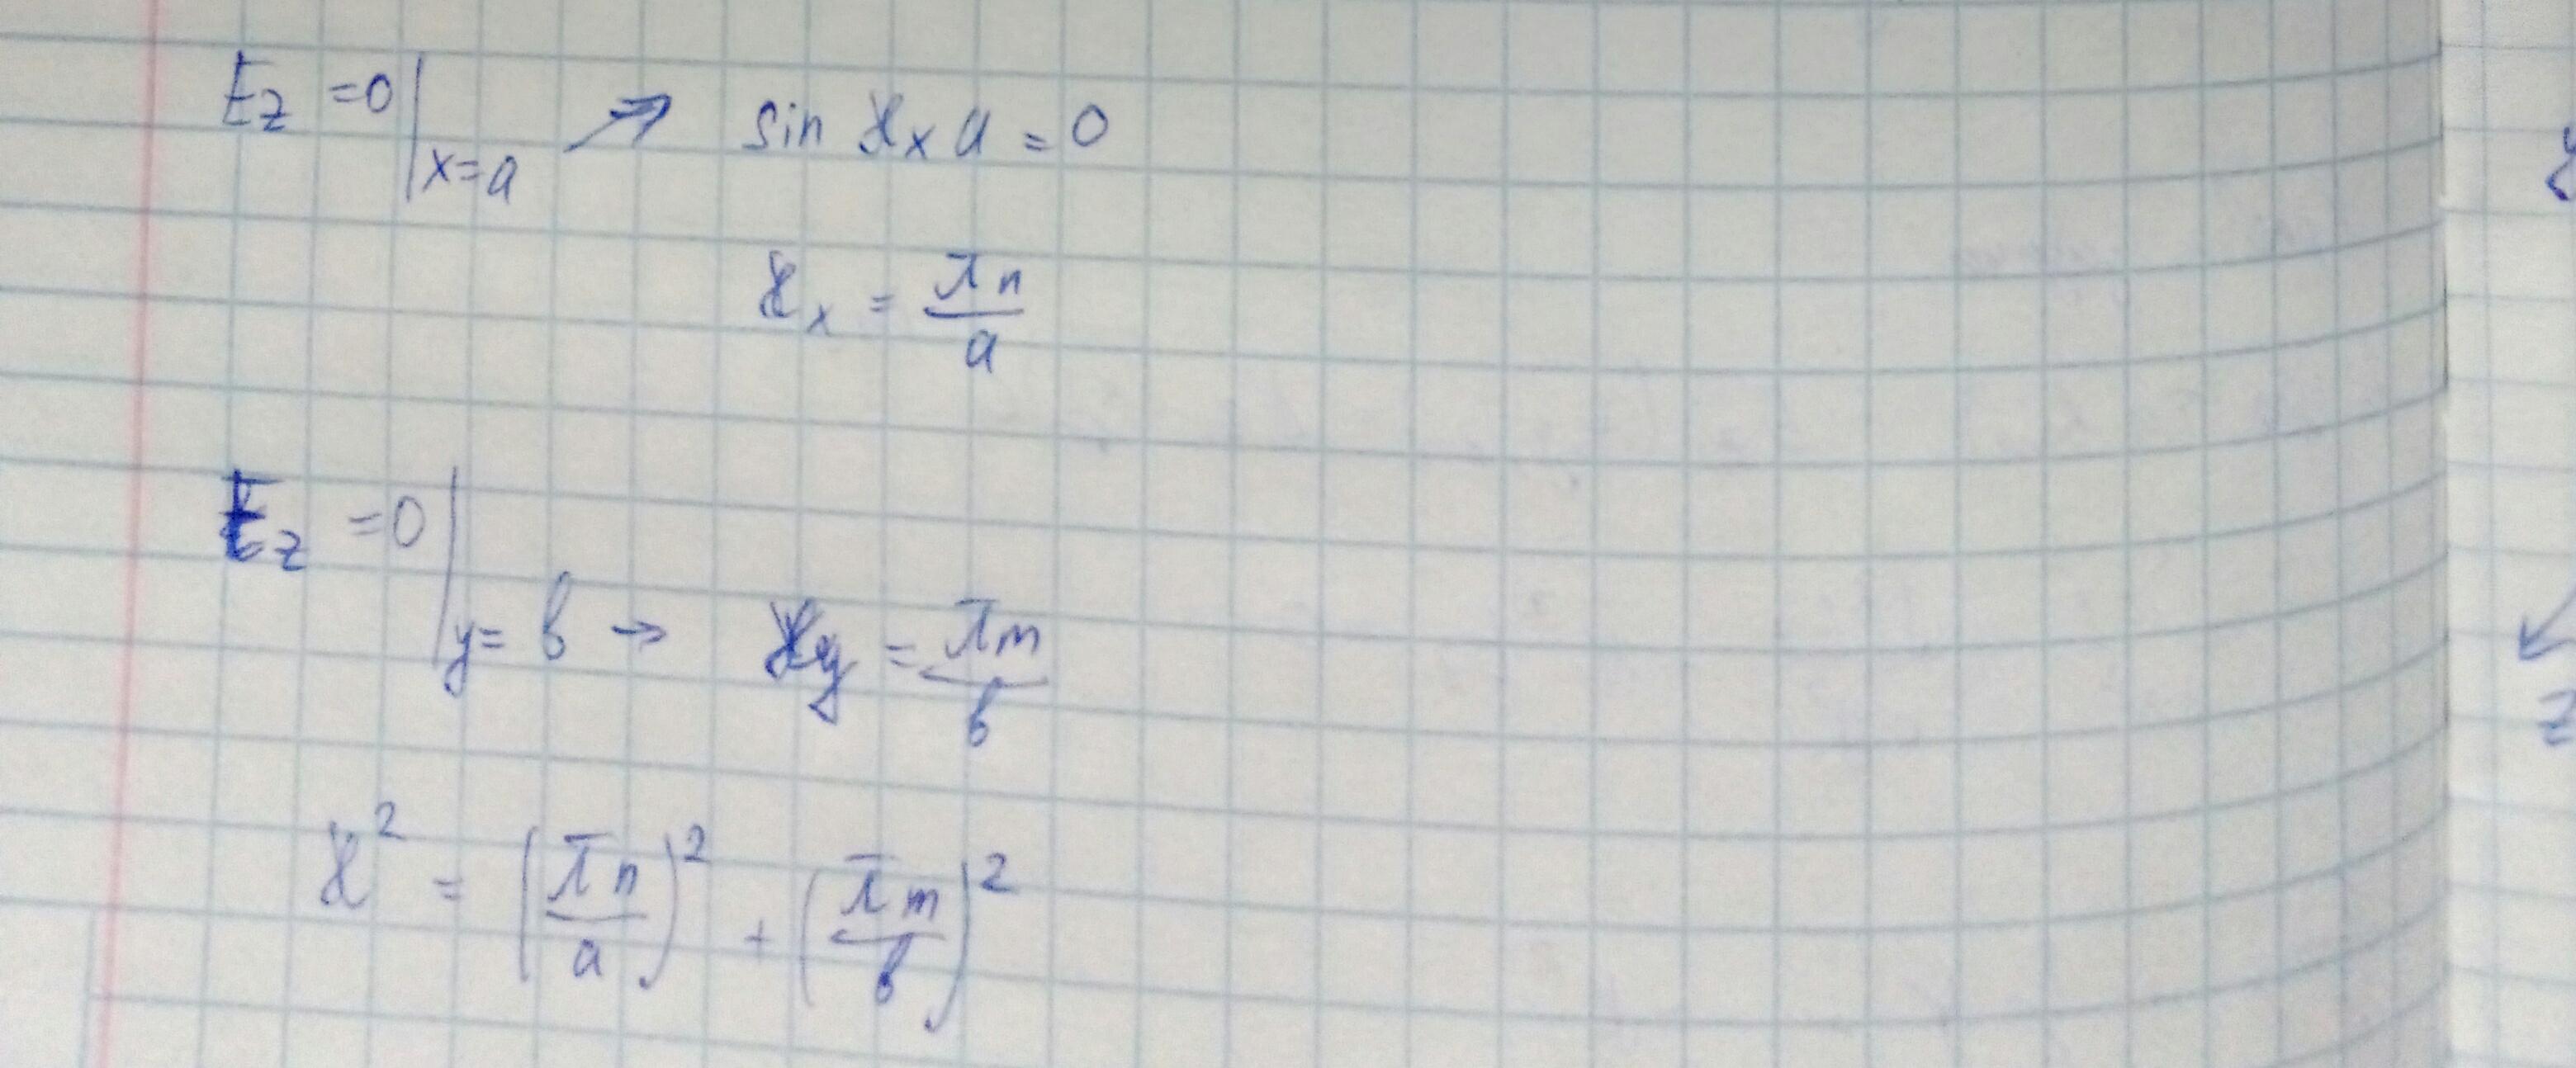 E_z = 0 |_{x=a} ↗ sin ϰ_x a = 0
ϰ_x = πn / a
E_z = 0 |_{y=b} → ϰ_y = πm / b
ϰ² = (πn / a)² + (πm / b)²
z